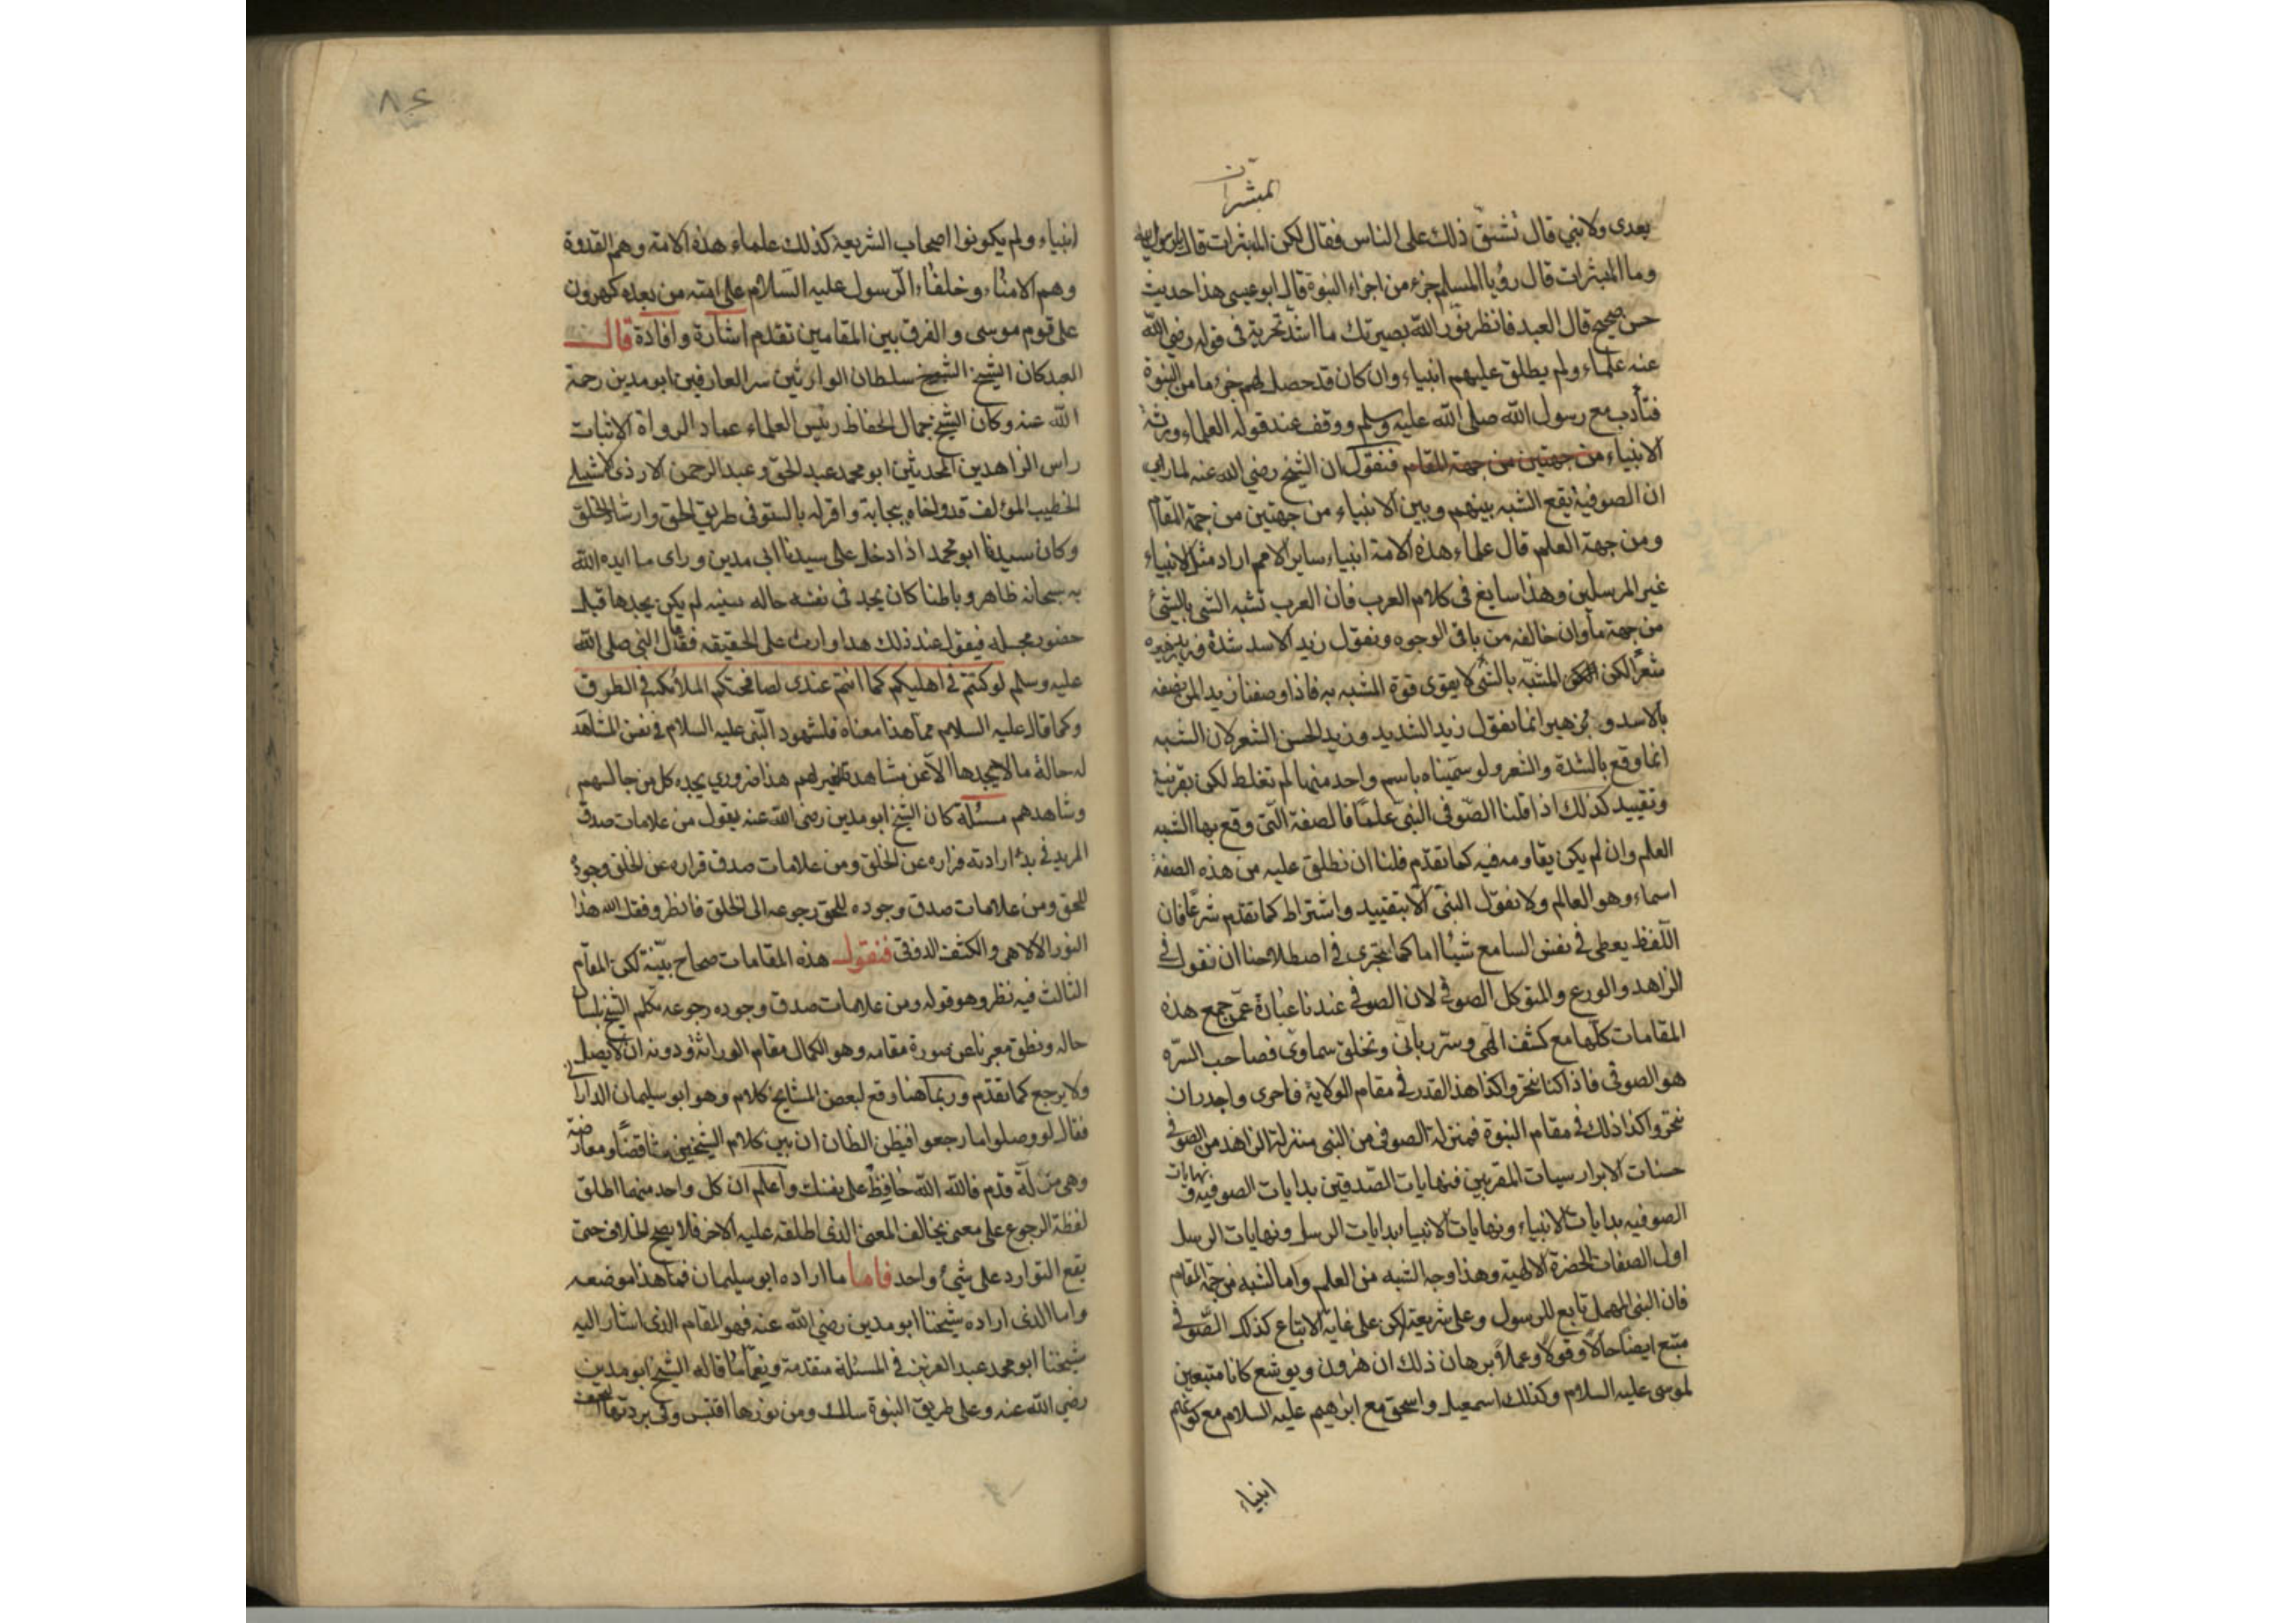 المبشرات
بعدى ولا نبي قال فشق ذلك على الناس فقال لكن المبشرات قالوا يا رسول الله
وما المبشرات قال رؤيا المسلم جزء من اجزاء النبوة قال ابو عيسى هذا حديث
حسن صحيح قال العبد فانظر نور الله بصيرتك ما اشد تحريه فى قوله رضي الله
عنه علماء ولم يطلق عليهم انبياء وان كان قد حصل لهم جزء ما من النبوة
فتأدب مع رسول الله صلى الله عليه وسلم ووقف عند قوله العلماء ورثة
الانبياء من جهتين من جهة المقام فنقول ان الشيخ رضي الله عنه لما راى
ان الصوفية يقع الشبه بينهم وبين الانبياء من جهتين من جهة المقام
ومن جهة العلم قال علماء هذه الامة انبياء ساير الامم اراد مثل الانبياء
غير المرسلين وهذا سايغ فى كلام العرب فان العرب تشبه الشئ بالشئ
من جهة ما وان خالفه من باقى الوجوه ونقول زيد الاسد شدة زهير
شعرا لكن المشبه بالشئ لا يقوى قوة المشبه به فاذا وصفنا زيدا لم نصفه
بالاسد و زهير انما نقول زيد الشديد وزيد الحسن الشعر لان الشبه
انما وقع بالشدة والشعر ولو سميناه باسم واحد منهما لم تغلط لكن بقرينة
وتقييد كذلك اذا قلنا الصوفى النبى علما فالصفة التى وقع بها الشبه
العلم وان لم يكن يقاومه فيه كما تقدم فلنا ان نطلق عليه من هذه الصفة
اسماء وهو العالم ولا نقول النبى الا بتقييد واشتراط كما تقدم شرعا فان
اللفظ يعطى فى نفس السامع شيئا اما كما نتجرى فى اصطلاحنا ان نقول فى
الزاهد والورع والمتوكل الصوفى لان الصوفى عندنا عبارة عمن جمع هذه
المقامات كلها مع كشف الهى وسر ربانى وتخلق سماوى فصاحب السره
هو الصوفى فاذا كنا نتجروا كذا هذا القدر فى مقام الولاية فاحرى واجدر ان
نتجروا كذا ذلك فى مقام النبوة فمنزلة الصوفى من النبى منزلة الزاهد من الصوفى
حسنات الابرار سيات المقربين فنهايات الصديقين بدايات الصوفيه ونهايات
الصوفيه بدايات الانبياء ونهايات الانبياء بدايات الرسل ونهايات الرسل
اول الصفات الحضرة الالهية وهذا وجه الشبه من العلم واما الشبه من جهة المقام
فان النبى المهمل تابع للرسول وعلى شريعته لكن على غاية الاتباع كذلك الصوفى
متبع ايضا حالا وقولا وعملا برهان ذلك ان هرون ويوشع كانا متبعين
لموسى عليه السلام وكذلك اسمعيل واسحق مع ابرهيم عليه السلام مع كونهم
انبياء
٨٤
انبياء ولم يكونوا اصحاب الشريعة كذلك علماء هذه الامة وهم القدوة
وهم الامناء وخلفاء الرسول عليه السلام على امته من بعده كهرون
على قوم موسى والفرق بين المقامين تقدم اشارة وافادة قال
العبد كان الشيخ سلطان الوارثين سر العارفين ابو مدين رحمة
الله عنه وكان الشيخ جمال الحفاظ رئيس العلماء عماد الرواة الاثبات
راس الزاهدين المحدثين ابو محمد عبد الحق وعبد الرحمن الازدى الاشبيلى
الخطيب المؤلف قد واخاه ببجاية واقر له بالسبق فى طريق الحق وارشاد الخلق
وكان سيدنا ابو محمد اذا دخل على سيدنا ابى مدين وراى ما ايده الله
به سبحانه ظاهرا وباطنا كان يجد فى نفسه حاله سنيه لم يكن يجدها قبل
حضور مجلسه فيقول عند ذلك هذا وارث على الحقيقه فقال النبى صلى الله
عليه وسلم لو كنتم فى اهليكم كما انتم عندى لصافحتكم الملائكة فى الطرق
وكما قال عليه السلام مما هذا معناه فلشهود النبى عليه السلام فى نفس المشاهد
له حالة ما لا يجدها الا عن مشاهدة لغيرهم هذا ضرورى يجده كل من جالسهم
وشاهدهم مسئلة كان الشيخ ابو مدين رضى الله عنه يقول من علامات صدق
المريد فى بدء ارادته فراره عن الخلق ومن علامات صدق فراره عن الخلق وجوده
للحق ومن علامات صدق وجوده للحق رجوعه الى الخلق فانظر وفقك الله هذا
النور الالاهى والكشف الذوقى فنقول هذه المقامات صحاح بينة لكن المقام
الثالث فيه نظر وهو قوله ومن علامات صدق وجوده رجوعه تكلم الشيخ بلسان
حاله ونطق معبرنا عن صورة مقامه وهو الكمال مقام الوراثة ودونه ان لا يصل
ولا يرجع كما تقدم وربما هنا وقع لبعض المشايخ كلام وهو ابو سليمان الدارانى
فقال لو وصلوا ما رجعوا فيظن الظان ان بين كلام الشيخين مناقضا ومعارضة
وهى مزلة قدم فالله الله حافظ على نفسك واعلم ان كل واحد منهما اطلق
لفظة الرجوع على معنى يخالف المعنى الذى اطلقه عليه الاخر فلا يصح الخلاف حتى
يقع التوارد على شئ واحد فاما ما اراده ابو سليمان فما هذا موضعه
واما الذى اراده شيخنا ابو مدين رضي الله عنه فهو المقام الذى اشار اليه
شيخنا ابو محمد عبد العزيز فى المسئلة متقدمة ونعما ما قاله الشيخ ابو مدين
رضي الله عنه وعلى طريق النبوة سلك ومن نورها اقتبس وفى بردتها التحف